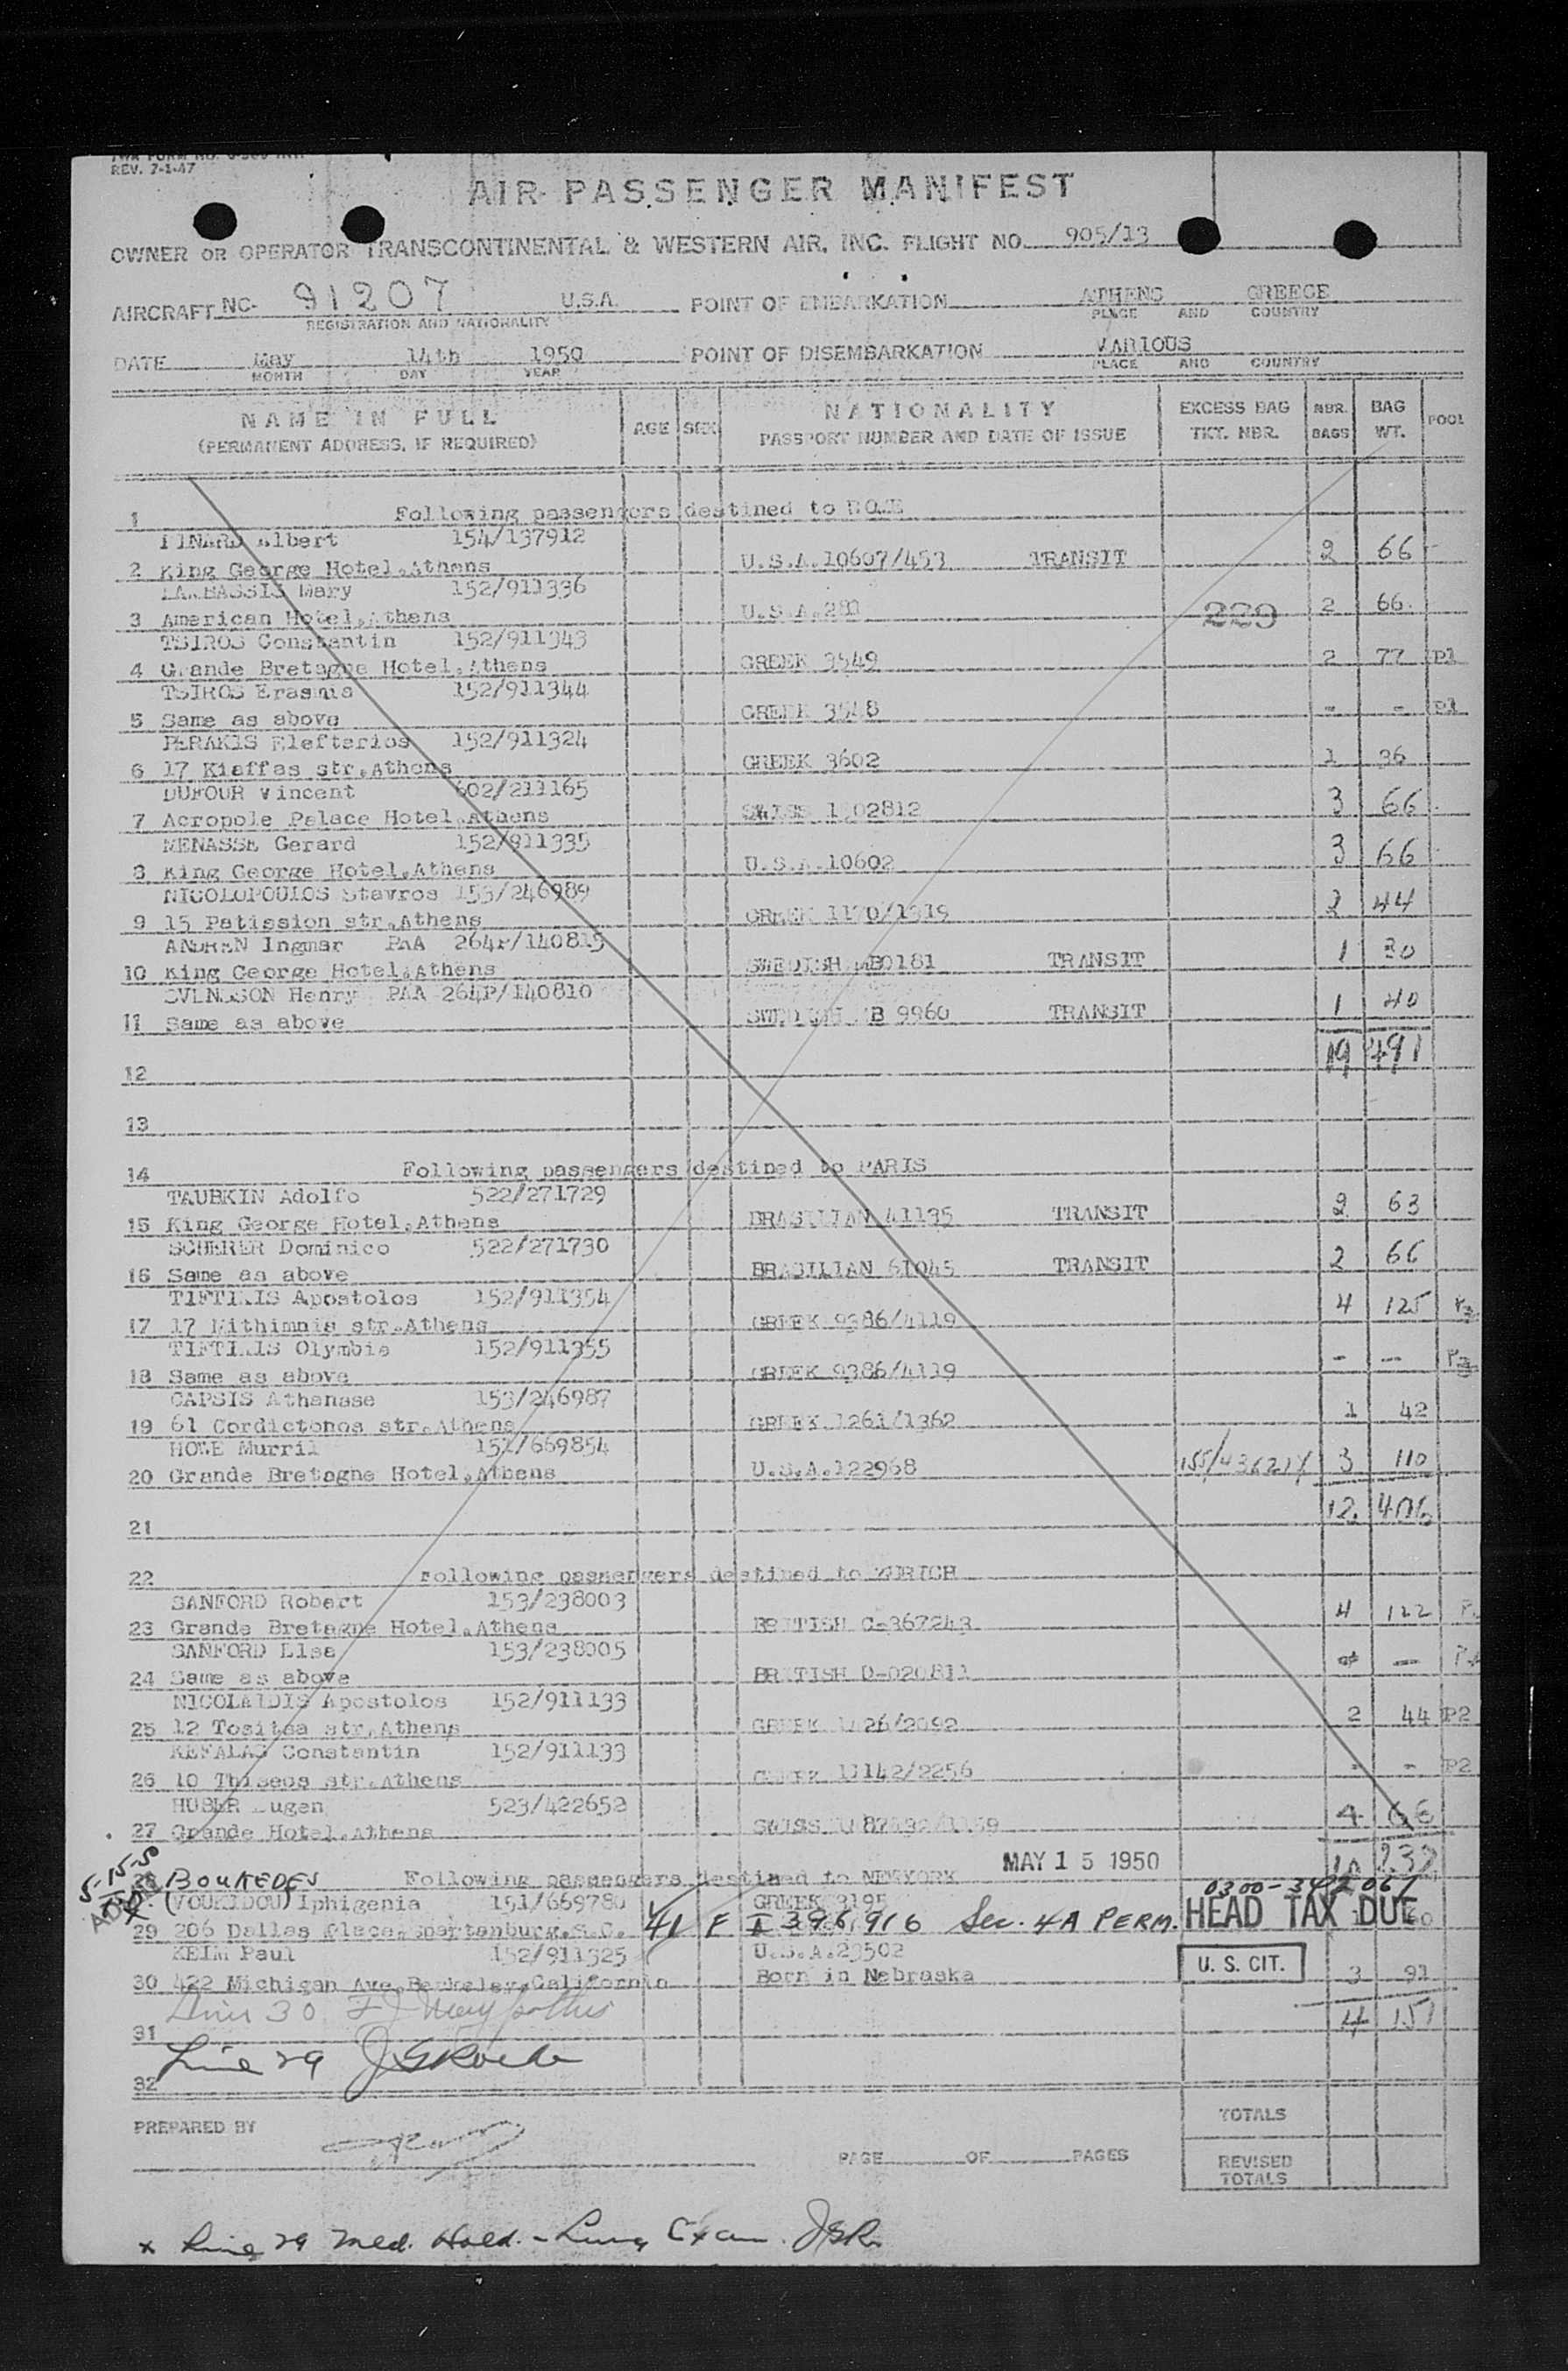 REV. 7-1-47
AIR PASSENGER MANIFEST
OWNER OR OPERATOR TRANSCONTINENTAL & WESTERN AIR, INC. FLIGHT NO. 905/13
AIRCRAFT NC- 91207 U.S.A. POINT OF EMBARKATION ATHENS GREECE
REGISTRATION AND NATIONALITY PLACE AND COUNTRY
DATE May 14th 1950 POINT OF DISEMBARKATION VARIOUS
MONTH DAY YEAR PLACE AND COUNTRY
NAME IN FULL AGE SEX NATIONALITY EXCESS BAG NBR. BAG POOL
(PERMANENT ADDRESS, IF REQUIRED) PASSPORT NUMBER AND DATE OF ISSUE TKT. NBR. BAGS WT.
1 Following passengers destined to ROME
PINARD Albert 154/137912
2 King George Hotel,Athens U.S.A.10607/453 TRANSIT 2 66
Mary 152/911336
3 American Hotel,Athens U.S.A. 229 2 66
TSIROS Constantin 152/911343
4 Grande Bretagne Hotel,Athens GREEK 3549 2 77 P1
TSIROS Erasmia 152/911344
5 Same as above GREEK 3548 - - P1
PERAKIS Elefterios 152/911324
6 17 Kiaffas str.Athens GREEK 3602 36
DUFOUR Vincent 602/211165
7 Acropole Palace Hotel,Athens SWISS 02812 3 66
MENASSE Gerard 152/911335
8 King George Hotel,Athens U.S.A.10602 3 66
NICOLOPOULOS Stavros 153/246989
9 15 Patission str.Athens GREEK 1170/1319 2 44
ANDREN Ingmar PAA 264P/140815
10 King George Hotel,Athens SWEDISH 0181 TRANSIT 1 30
SVENSSON Henry PAA 264P/140810
11 Same as above SWEDISH B 9960 TRANSIT 1 40
12 19 491
13
14 Following passengers destined to PARIS
TAUBKIN Adolfo 522/271729
15 King George Hotel,Athens BRASILIAN 41195 TRANSIT 2 63
SCHERER Dominico 522/271730
16 Same as above BRASILIAN 61045 TRANSIT 2 66
TIFTIKIS Apostolos 152/911354
17 17 Mithimnis str.Athens GREEK 9386/4119 4 125
TIFTIKIS Olymbia 152/911355
18 Same as above GREEK 9386/4119 - -
CAPSIS Athanase 153/246987
19 61 Cordictonos str.Athens GREEK 1261/1362 1 42
HOWE Murril 151/669854
20 Grande Bretagne Hotel,Athens U.S.A.122968 3 110
21 12
22 Following passengers destined to ZURICH
SANFORD Robert 153/238003
23 Grande Bretagne Hotel,Athens BRITISH C-367243 4 122
SANFORD Lisa 153/238005
24 Same as above BRITISH D-020811 -
NICOLAIDIS Apostolos 152/911133
25 12 Tositsa str.Athens GREEK 2 44 P2
KEFALAS Constantin 152/911133
26 10 Thiseos str.Athens GREEK 11142/2256 - - P2
HUBER Eugen 523/422652
27 Grande Hotel,Athens SWISS 4 66
5-15-50
28 BOUKEDES Following passengers destined to NEWYORK MAY 15 1950 10 232
(VOUKIDOU) Iphigenia 151/669780 GREEK 3195 0300-342061
29 206 Dallas place,Spartanburg,S.C. 41 F I 396916 Sec. 4A PERM. HEAD TAX DUE
KEIM Paul 152/911325 U.S.A.23502
30 422 Michigan Ave,Berkeley,California Born in Nebraska U. S. CIT. 3 91
Line 30
31 4 151
Line 29
32
TOTALS
PREPARED BY
PAGE OF PAGES
REVISED
TOTALS
x Line 29 Med. Hold. - Lung Exam. JGR